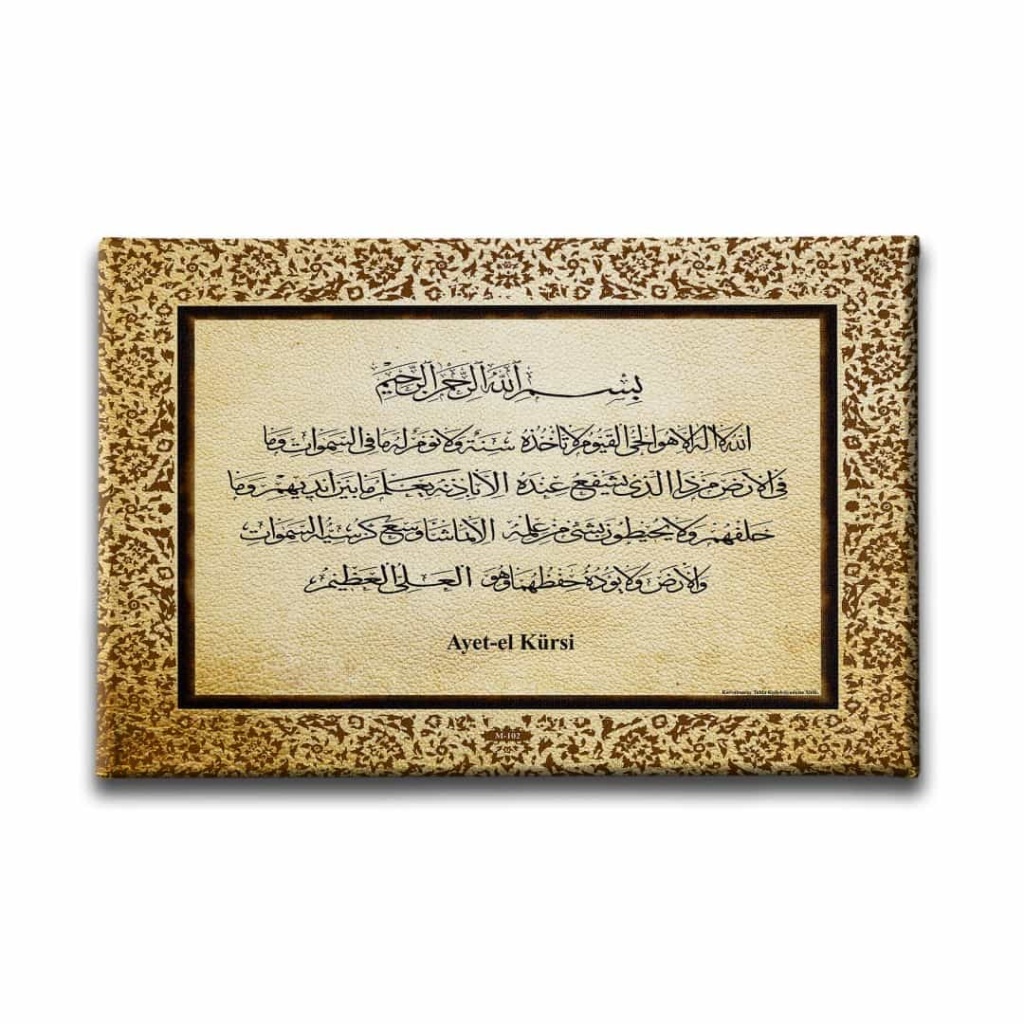 بسم الله الرحمن الرحيم
الله لا اله الا هو الحي القيوم لا تأخذه سنة ولا نوم له ما في السموات وما
في الارض من ذا الذي يشفع عنده الا باذنه يعلم ما بين ايديهم وما
خلفهم ولا يحيطون بشئ من علمه الا بما شاء وسع كرسيه السموات
والارض ولا يؤده حفظهما وهو العلي العظيم
Ayet-el Kürsi
M-102